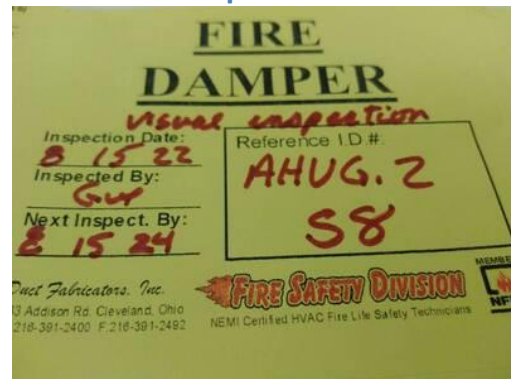 FIRE
DAMPER
visual inspection
Inspection Date:
8 15 22
Inspected By:
Next Inspect. By:
8 15 24
Reference I.D.#:
AHUG.2
S8
Duct Fabricators, Inc.
3 Addison Rd. Cleveland, Ohio
216-391-2400 F:216-391-2492
FIRE SAFETY DIVISION
NEMI Certified HVAC Fire Life Safety Technicians
MEMBE
NF